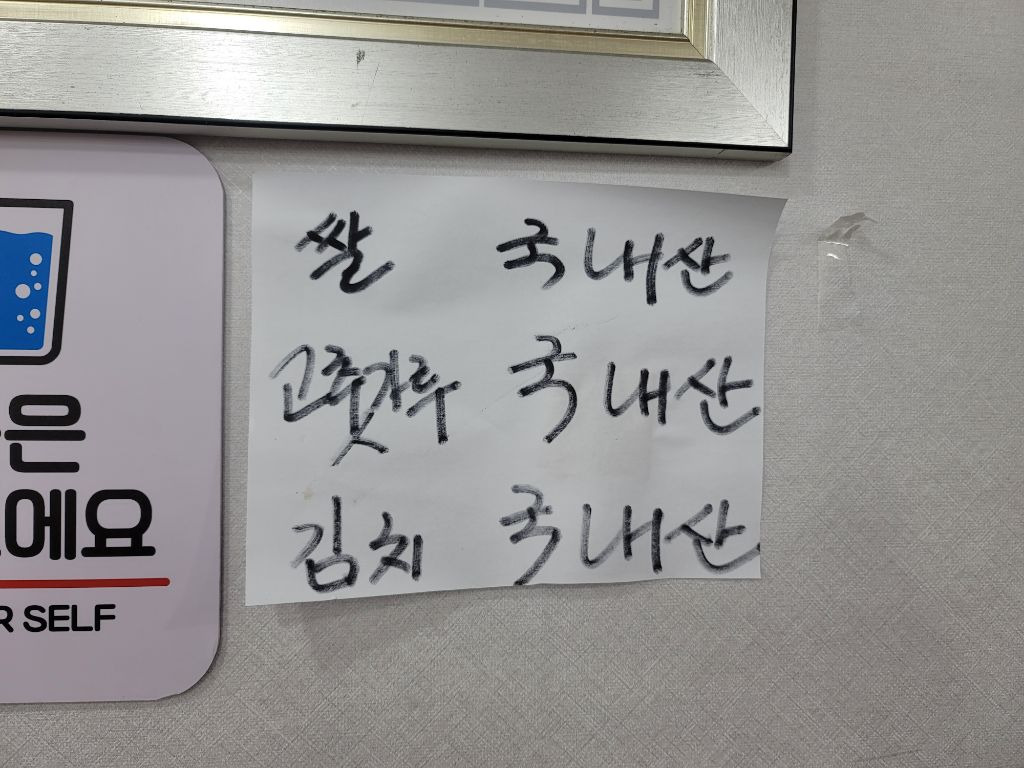 쌀 국내산
고춧가루 국내산
김치 국내산
은
에요
R SELF